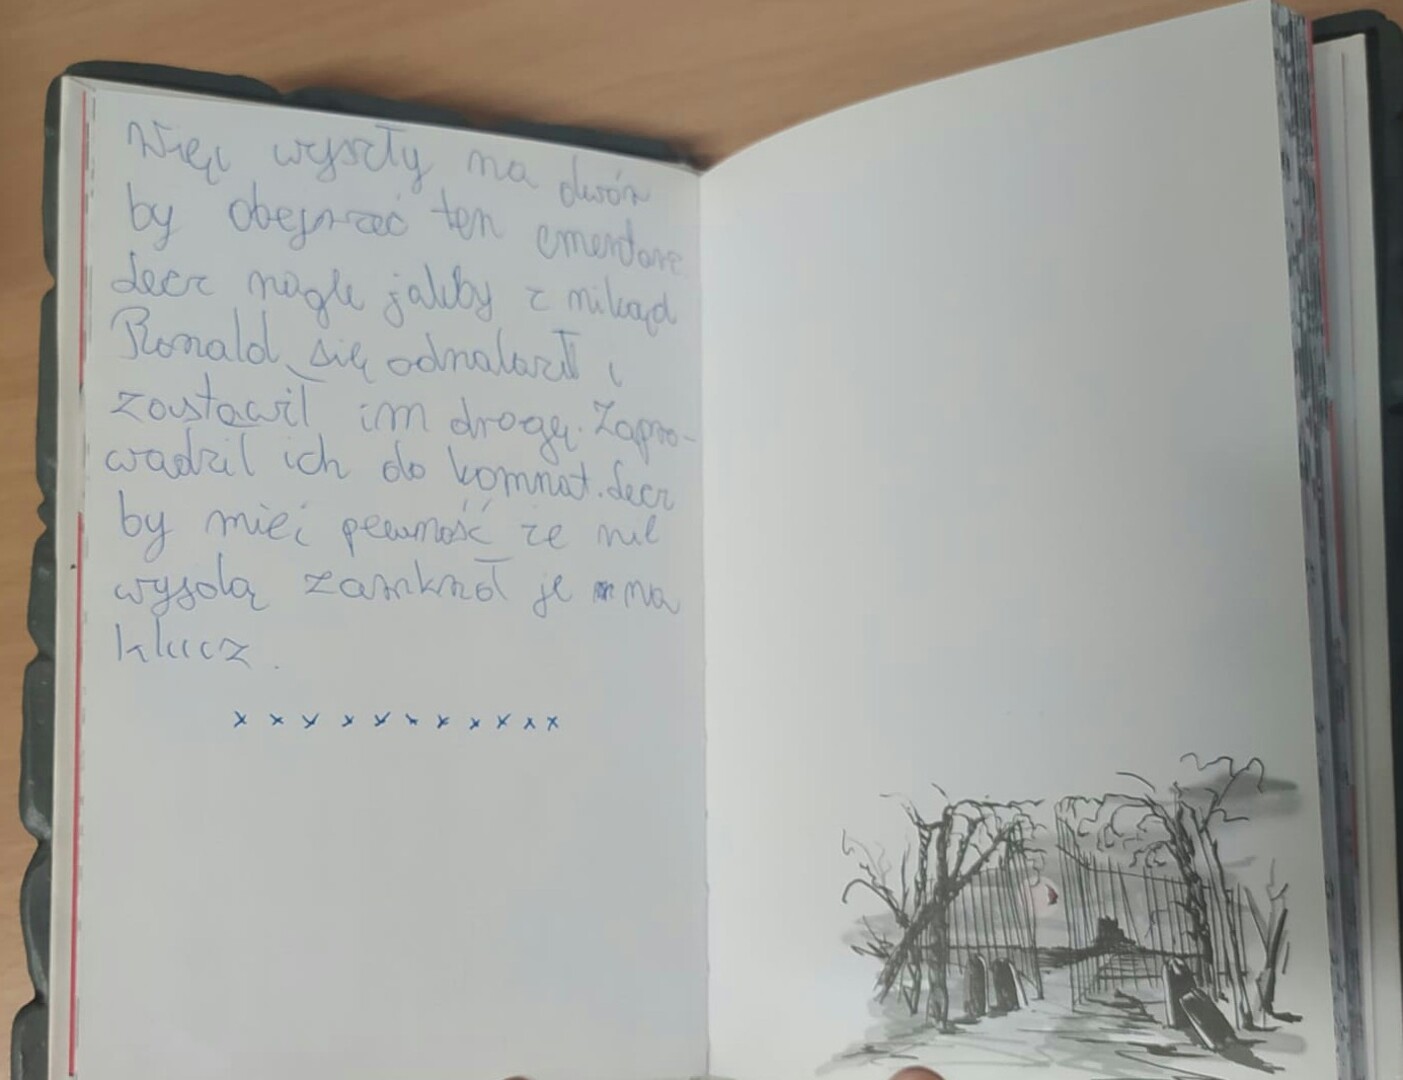 Więc wyszły na dwór
by obejrzeć ten cmentarz
Lecz nagle jakby z nikąd
Ronald się odnalazł i
zastawił im drogę. Zapro-
wadził ich do komnat. Lecz
by mieć pewność że nie
wyjdą zamknoł je na
klucz.
x x x x x x x x x x x